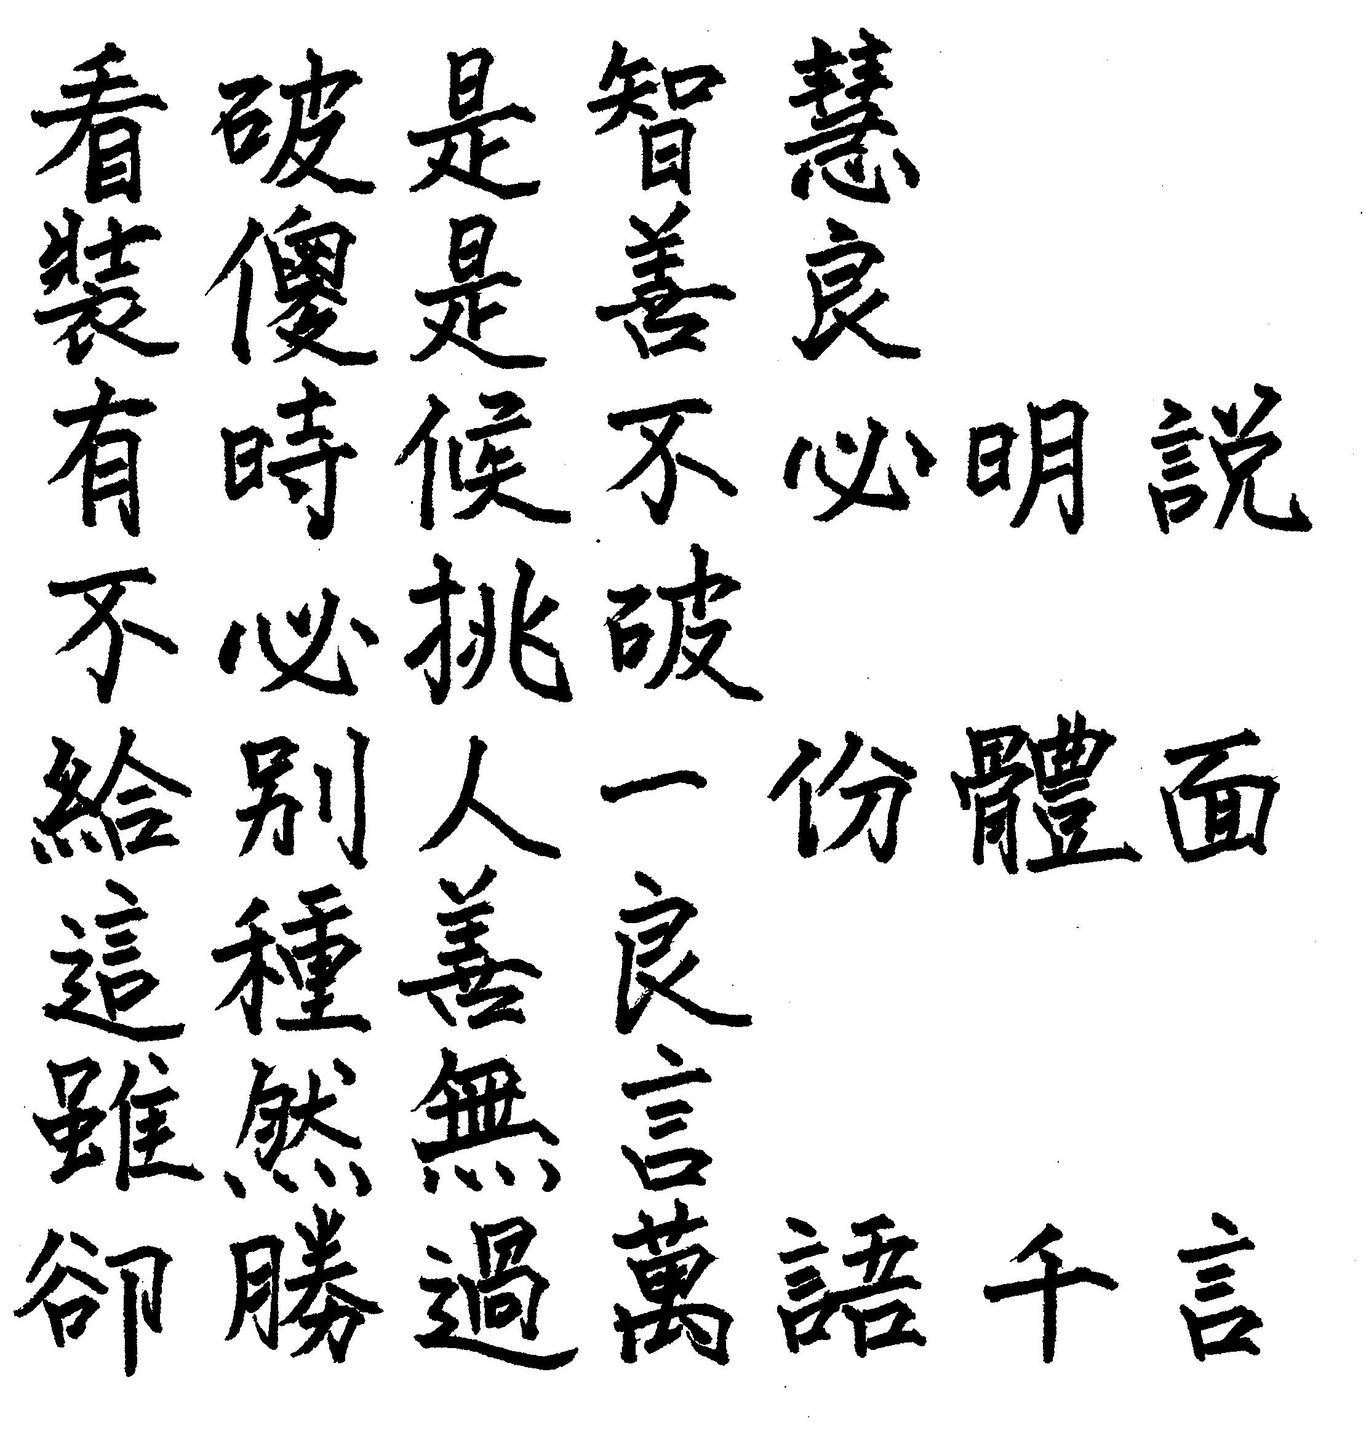 看破是智慧
裝傻是善良
有時候不必明説
不必挑破
給別人一份體面
這種善良
雖然無言
卻勝過萬語千言